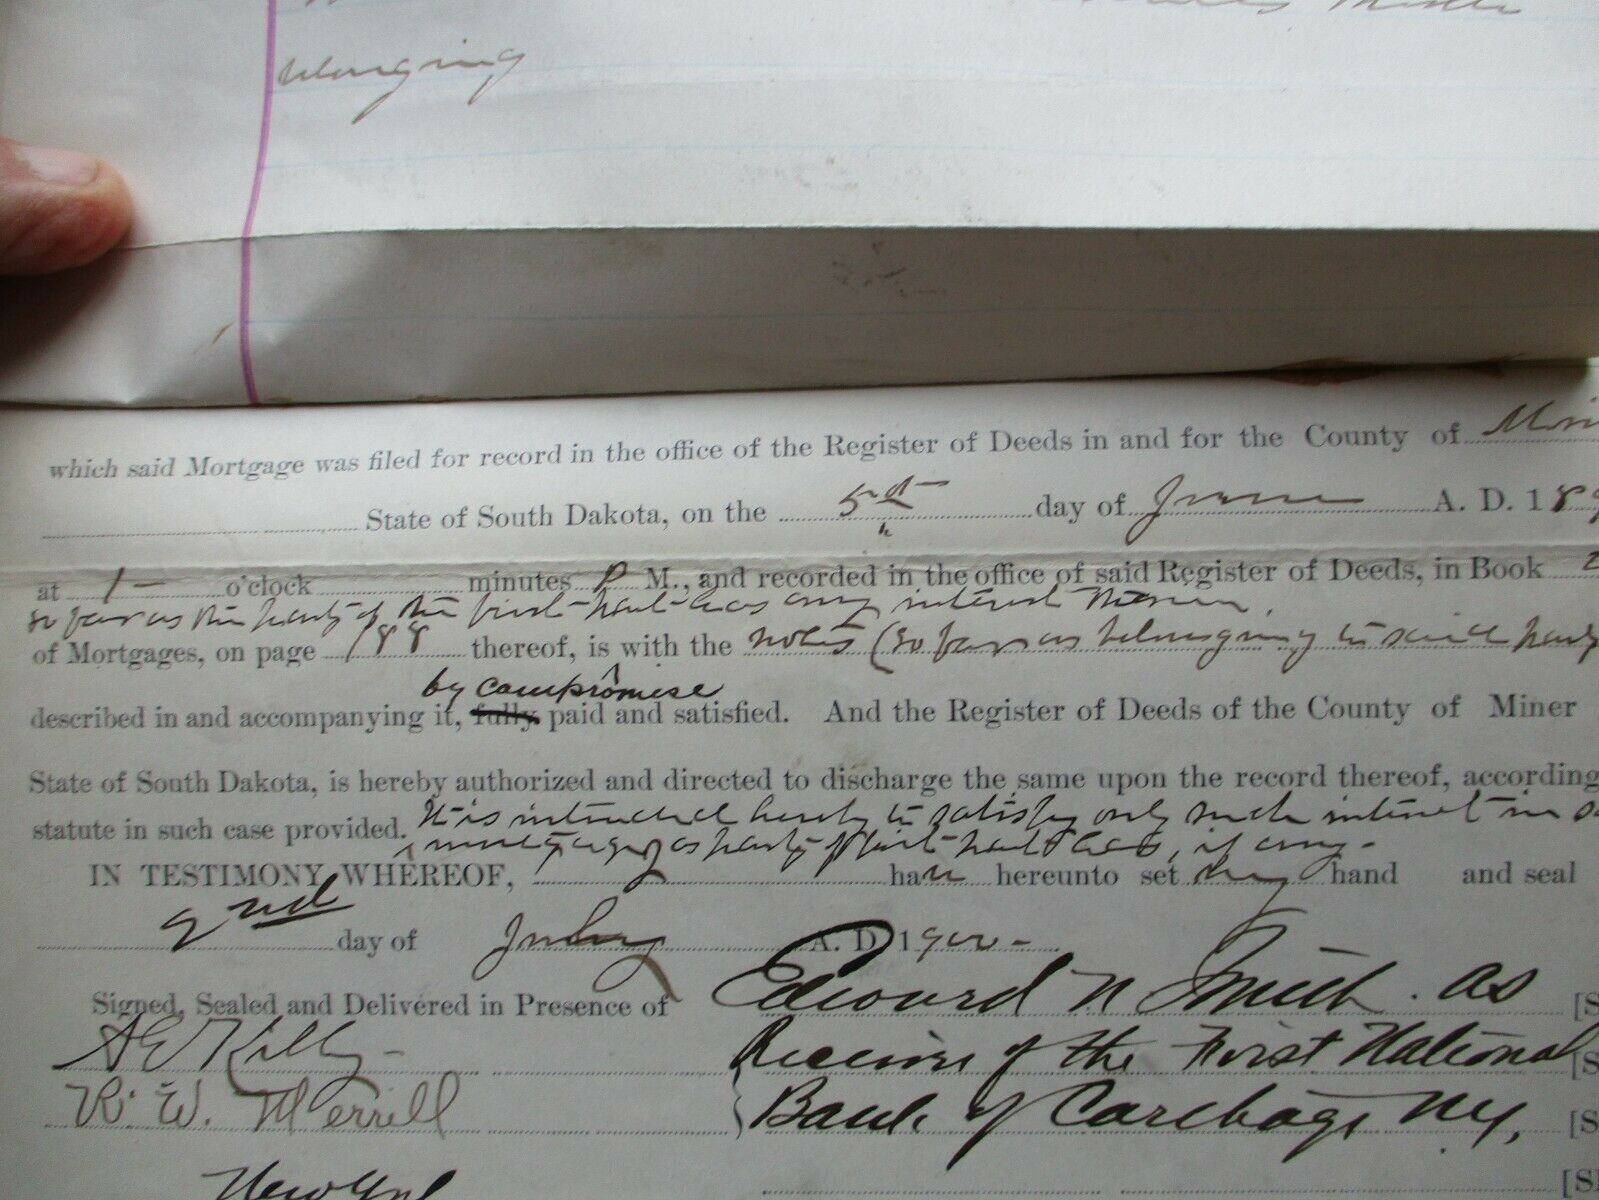 belonging
which said Mortgage was filed for record in the office of the Register of Deeds in and for the County of
State of South Dakota, on the 5th day of June A. D. 189
at 1 o'clock minutes P M., and recorded in the office of said Register of Deeds, in Book 2
so far as the party of the first part has any interest therein,
of Mortgages, on page 188 thereof, is with the notes (so far as belonging to said party
by compromise
described in and accompanying it, fully paid and satisfied. And the Register of Deeds of the County of Miner
State of South Dakota, is hereby authorized and directed to discharge the same upon the record thereof, according
statute in such case provided. It is intended hereby to satisfy only such interest in
mortgage as party of first part has, if any-
IN TESTIMONY WHEREOF, have hereunto set my hand and seal
2nd day of July A. D. 1900-
Signed, Sealed and Delivered in Presence of
Edward N Smith. as [S
A E Kilby
Receiver of the First National [S
R. W. Merrill
Bank of Carthage NY, [S
New York
[SE